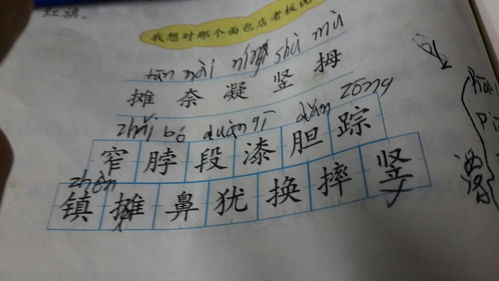 红旗。
我想对那个面包店老板说
tān nài níng shù mǔ
摊 奈 凝 竖 拇
zhǎi bó duàn qī dǎn zōng
窄 脖 段 漆 胆 踪
zhèn
镇 摊 鼻 犹 换 摔 竖